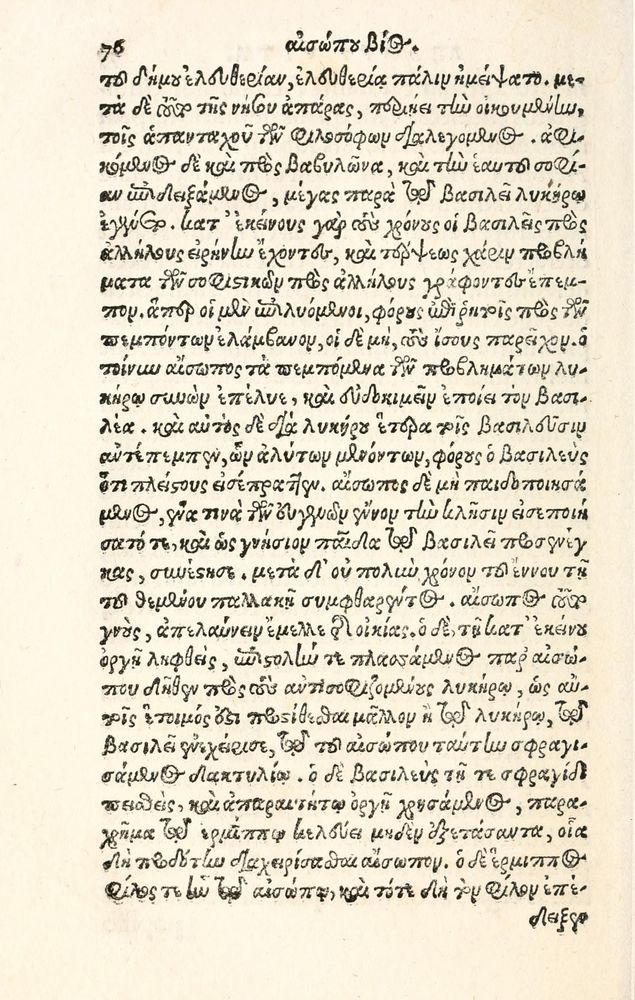 76 αἰσώπου βίος.
τοῦ δήμου ἐλευθερίαν, ἐλευθερία πάλιν ἠμείψατο. με-
τὰ δὲ οὖν τῆς νήσου ἀπάρας, περιῄει τὴν οἰκουμένην,
τοῖς ἁπανταχοῦ τῶν φιλοσόφων διαλεγόμενος. ἀφι-
κόμενος δὲ καὶ πρὸς βαβυλῶνα, καὶ τὴν ἑαυτοῦ σοφί-
αν ἐπιδειξάμενος, μέγας παρὰ τῷ βασιλεῖ λυκήρῳ
ἐγένετο. κατ' ἐκείνους γὰρ τοὺς χρόνους οἱ βασιλεῖς πρὸς
ἀλλήλους εἰρήνην ἔχοντες, καὶ τέρψεως χάριν προβλή
ματα τῶν σοφιστικῶν πρὸς ἀλλήλους γράφοντες ἔπεμ-
πον. ἅπερ οἱ μὲν ἐπιλυόμενοι, φόρους ἐπὶ ῥητοῖς πρὸς τῶν
πεμπόντων ἐλάμβανον, οἱ δὲ μὴ, τοὺς ἴσους παρεῖχον. ὁ
τοίνυν αἴσωπος τὰ πεμπόμενα τῶν προβλημάτων λυ-
κήρῳ συνιὼν ἐπέλυε, καὶ εὐδοκιμεῖν ἐποίει τὸν βασι-
λέα. καὶ αὐτὸς δὲ διὰ λυκήρου ἕτερα τοῖς βασιλεῦσιν
ἀντέπεμπεν, ὧν ἀλύτων μενόντων, φόρους ὁ βασιλεὺς
ὅτι πλείστους εἰσέπραττεν. αἴσωπος δὲ μὴ παιδοποιησά
μενος, ἕνα τινὰ τῶν εὐγενῶν ἔννον τὴν κλῆσιν εἰσεποιή
σατό τε, καὶ ὡς γνήσιον παῖδα τῷ βασιλεῖ προσενέγ
κας, συνέστησε. μετὰ δ' οὐ πολὺν χρόνον τοῦ ἔννου τῇ
τοῦ θεμένου παλλακῇ συμφθαρέντος. αἴσωπος τοῦτο
γνοὺς, ἀπελαύνειν ἔμελλε τῆς οἰκίας. ὁ δὲ, τῇ κατ' ἐκείνου
ὀργῇ ληφθεὶς, ἐπιστολήν τε πλασάμενος παρ' αἰσώ-
που δῆθεν πρὸς τοὺς ἀντισοφιζομένους λυκήρῳ, ὡς αὐ-
τοῖς ἕτοιμός ἐστι προστίθεσθαι μᾶλλον ἢ τῷ λυκήρῳ, τῷ
βασιλεῖ ἐνεχείρισε, τῷ τοῦ αἰσώπου ταύτην σφραγι-
σάμενος δακτυλίῳ. ὁ δὲ βασιλεὺς τῇ τε σφραγῖδι
πεισθεὶς, καὶ ἀπαραιτήτῳ ὀργῇ χρησάμενος, παρα-
χρῆμα τῷ ἑρμίππῳ κελεύει μηδὲν ἐξετάσαντα, οἷα
δὴ προδότην διαχειρίσασθαι αἴσωπον. ὁ δὲ ἕρμιππος
φίλος τε ἦν τῷ αἰσώπῳ, καὶ τότε δὴ τὸν φίλον ἐπέ-
δειξεν